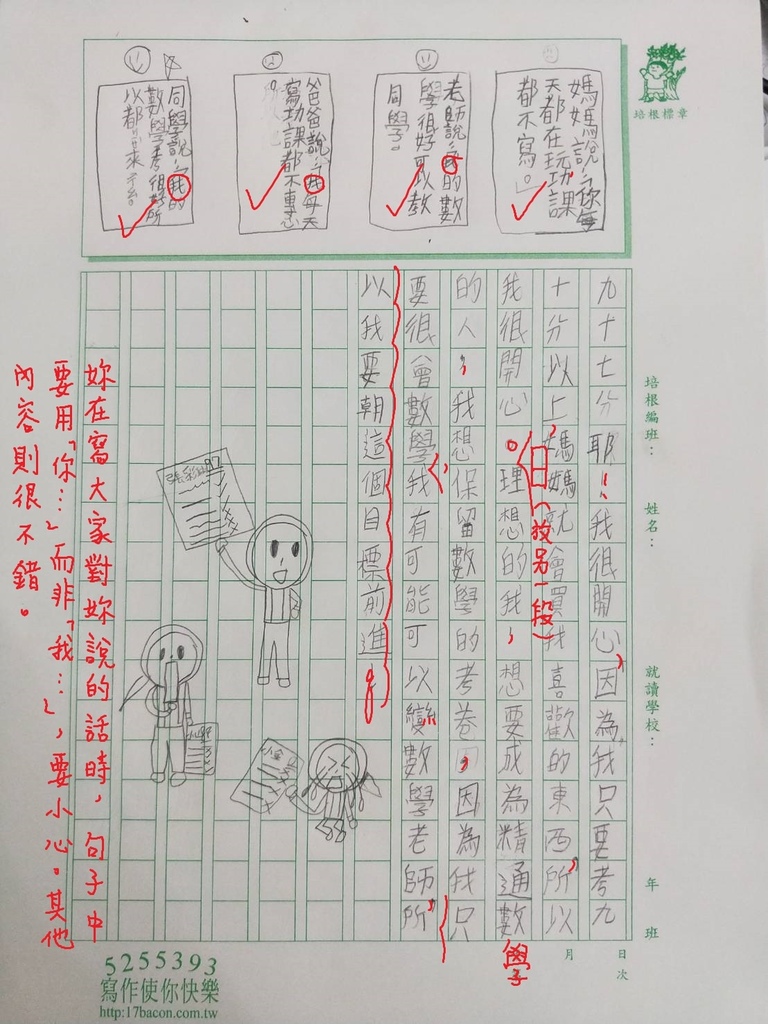 媽媽說:「你每
天都在玩功課
都不寫。」
老師說:我的數
學很好可以教
同學。
爸爸說:我每天
寫功課都不專心
同學說:我的
數學考很好所
以都
培根標章
九十七分耶!我很開心,因為,我只要考九
十分以上,媽媽就會買我喜歡的東西,所以
我很開心。理想的我,想要成為精通數學
(放另一段)
的人,我想保留數學的考卷,因為我只
要很會數學,我有可能可以變成數學老師,所
以我要朝這個目標前進。
張彩
97
妳在寫大家對妳說的話時,句子中
要用「你…」而非「我…」,要小心。其他
內容則很不錯。
培根編班:
姓名:
就讀學校:
年 班
月 日
次
5255393
寫作使你快樂
http:17bacon.com.tw